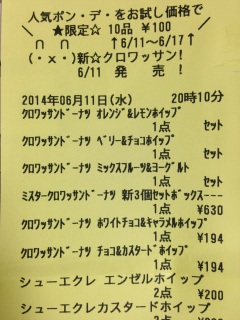 人気ポン・デ・をお試し価格で
★限定☆ 10品 ¥100
∩ ∩ ↑6/11～6/17↑
(・x・)新☆クロワッサン!
6/11 発 売 !
2014年06月11日(水) 20時10分
クロワッサンドーナツ オレンジ&レモンホイップ
1点 セット
クロワッサンドーナツ ベリー&チョコホイップ
1点 セット
クロワッサンドーナツ ミックスフルーツ&ヨーグルト
1点 セット
ミスタークロワッサンドーナツ 新3個セットボックス---
1点 ¥630
クロワッサンドーナツ ホワイトチョコ&キャラメルホイップ
1点 ¥194
クロワッサンドーナツ チョコ&カスタードホイップ
1点 ¥194
シューエクレ エンゼルホイップ
2点 ¥200
シューエクレカスタードホイップ